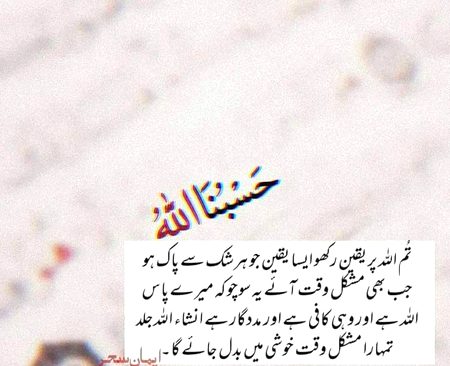 حَسْبُنَا اللّٰهُ
تُم اللہ پر یقین رکھو ایسا یقین جو ہر شک سے پاک ہو
جب بھی مشکل وقت آئے یہ سوچو کہ میرے پاس
اللہ ہے اور وہی کافی ہے اور مددگار ہے انشاء اللہ جلد
تمہارا مشکل وقت خوشی میں بدل جائے گا ۔
ایمان سحر